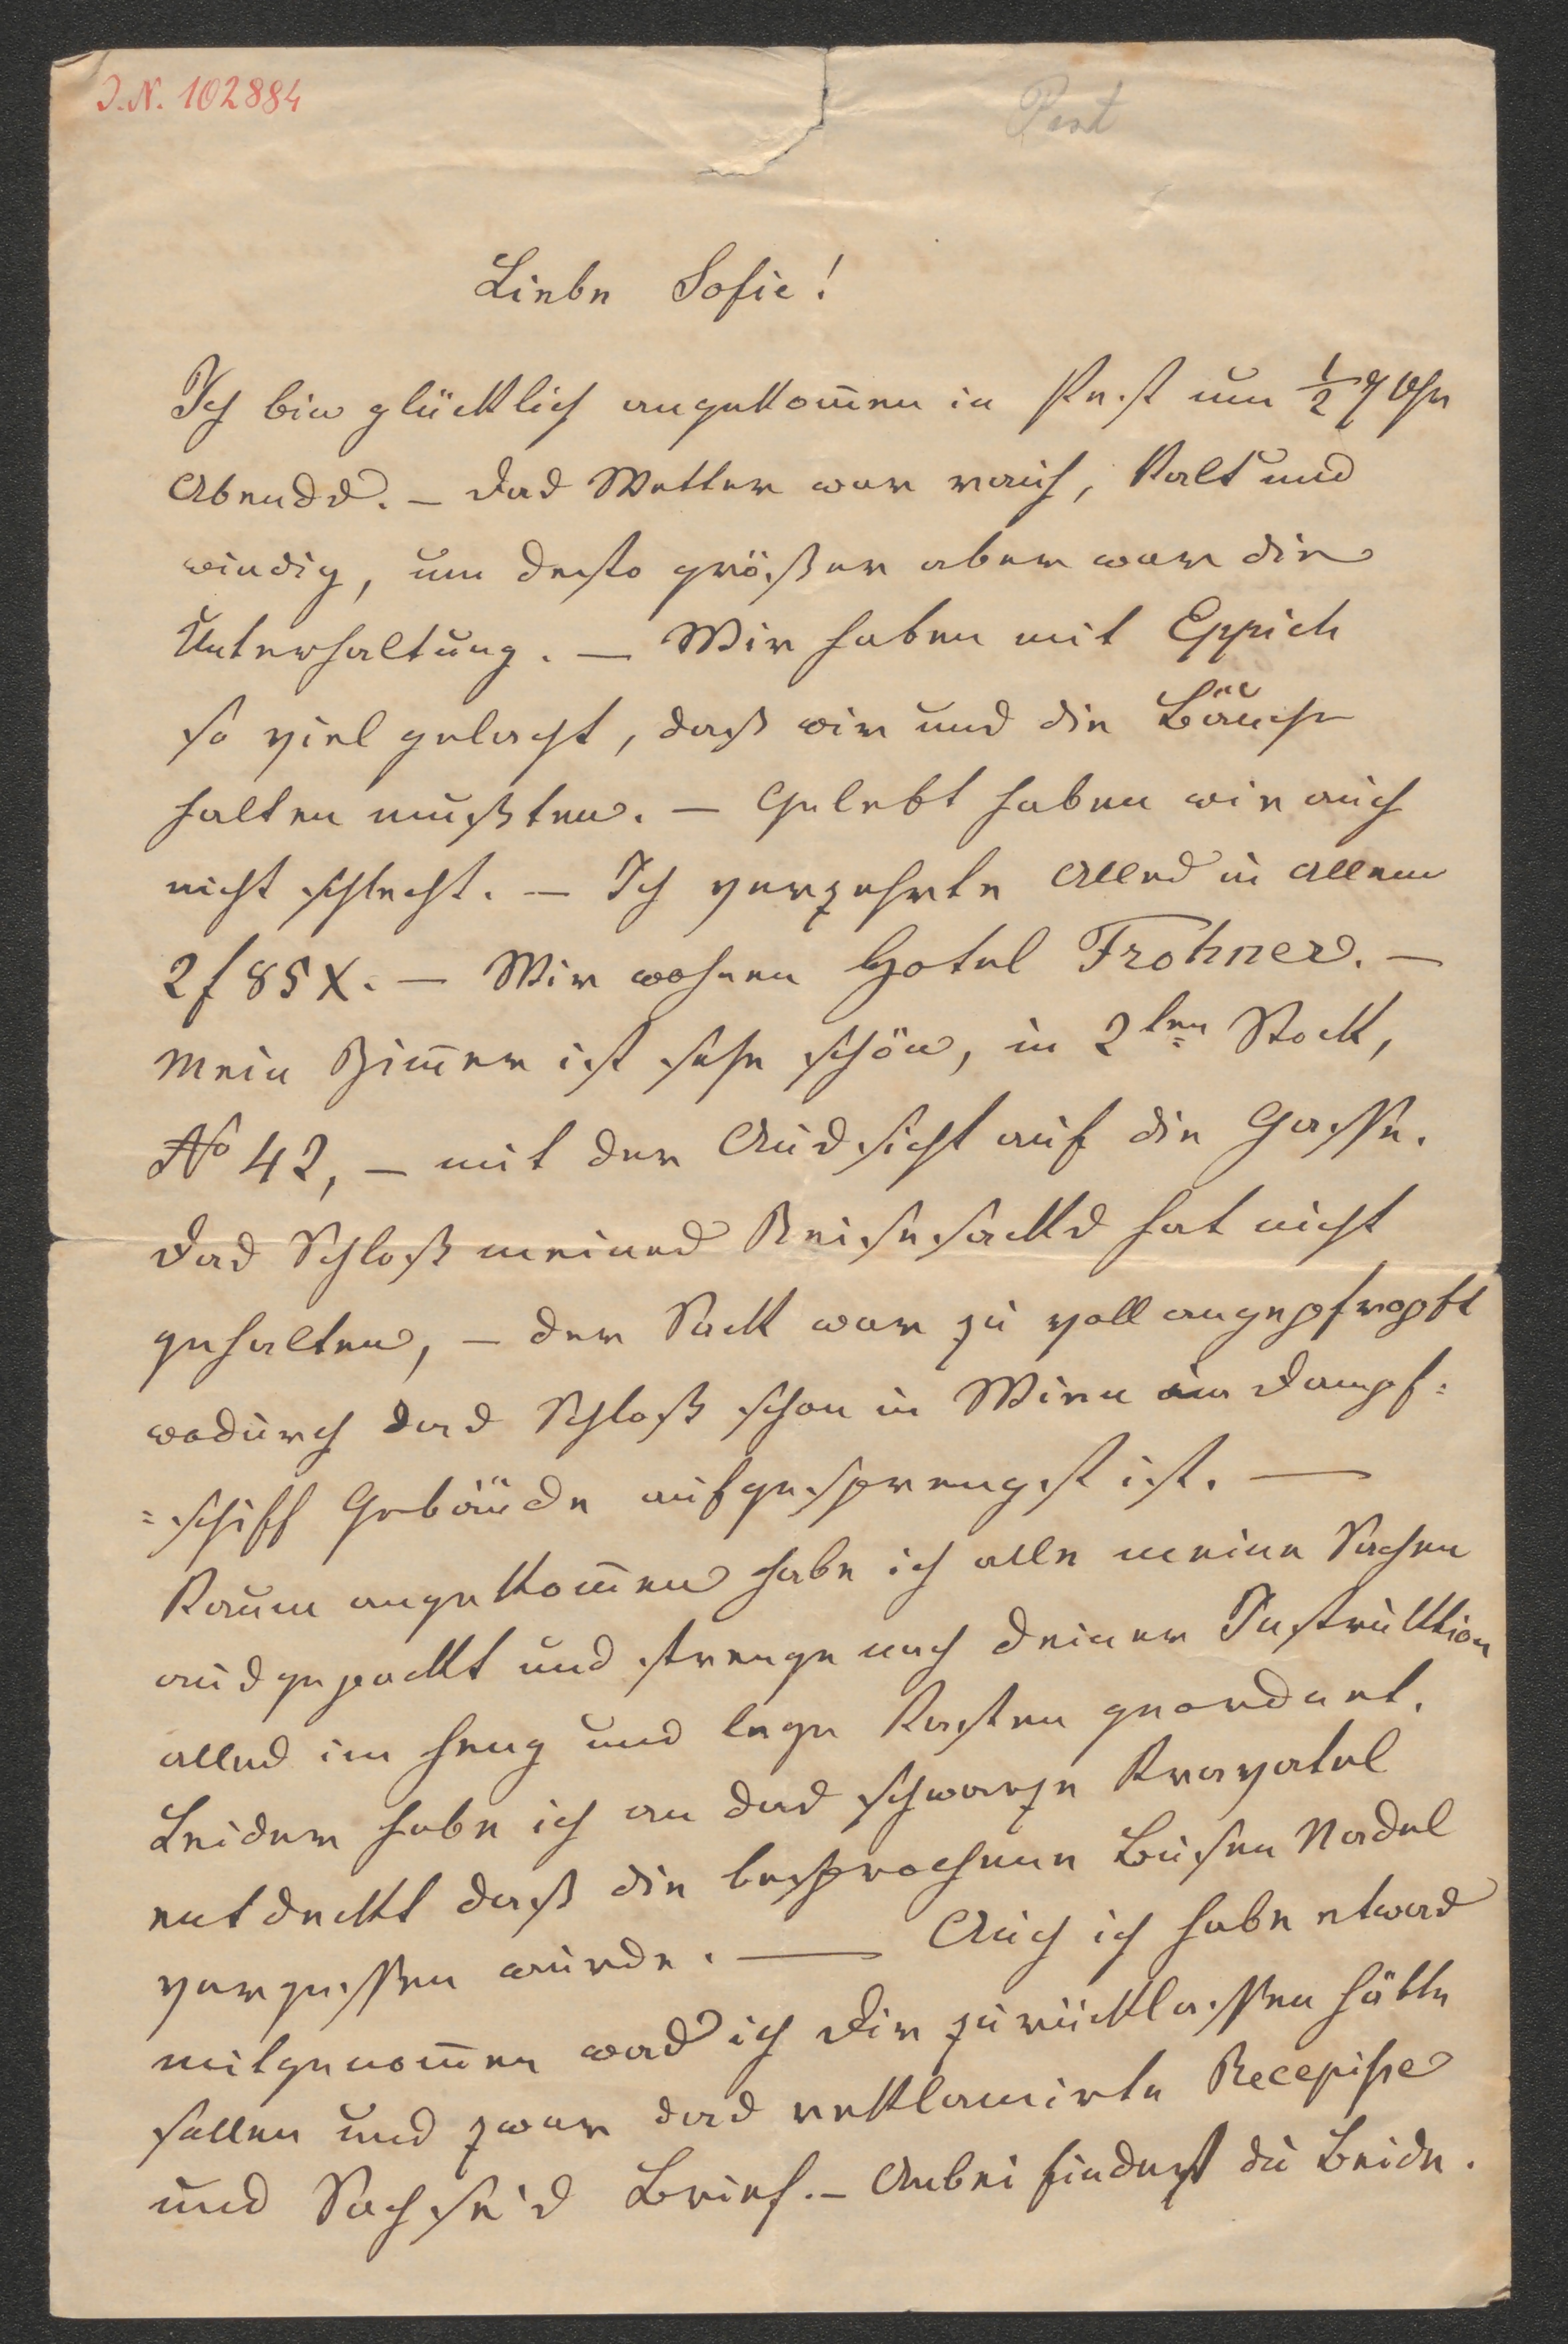 J.N. 102884
Pest
Liebe Sofie!
Ich bin glücklich angekom̅en in Pest um ½ 7 Uhr
Abends. – Das Wetter war rauh, kalt und
windig, um desto größer aber war die
Unterhaltung. – Wir haben mit Eppich
so viel gelacht, daß wir uns die Bäuche
halten mußten. – Gelebt haben wir auch
nicht schlecht. – Ich verzehrte Alles in Allem
2 f 85 x. – Wir wohnen Hotel Frohner. –
Mein Zim̅er ist sehr schön, in 2ten Stock,
No 42, – mit der Aussicht auf die Gasse.
Das Schloß meines Reisesacks hat nicht
gehalten, – der Sack war zu voll angepfropft
wodurch das Schloß schon in Wien im Dampf=
=schiff Gebäude aufgesprengst ist. —
Kaum angekom̅en habe ich alle meine Sachen
ausgepackt und strenge nach deiner Instruktion
alles im Heng und Lege Kasten geordnet.
Leider habe ich an das schwarze Kravatel
entdeckt daß die besprochene Busen Nadel
vergessen wurde. — Auch ich habe etwas
mitgenom̅en was ich Dir zurücklassen hätte
sollen und zwar das reklamirte Recepisse
und Sachse's Brief. – Anbei findest du Beide.